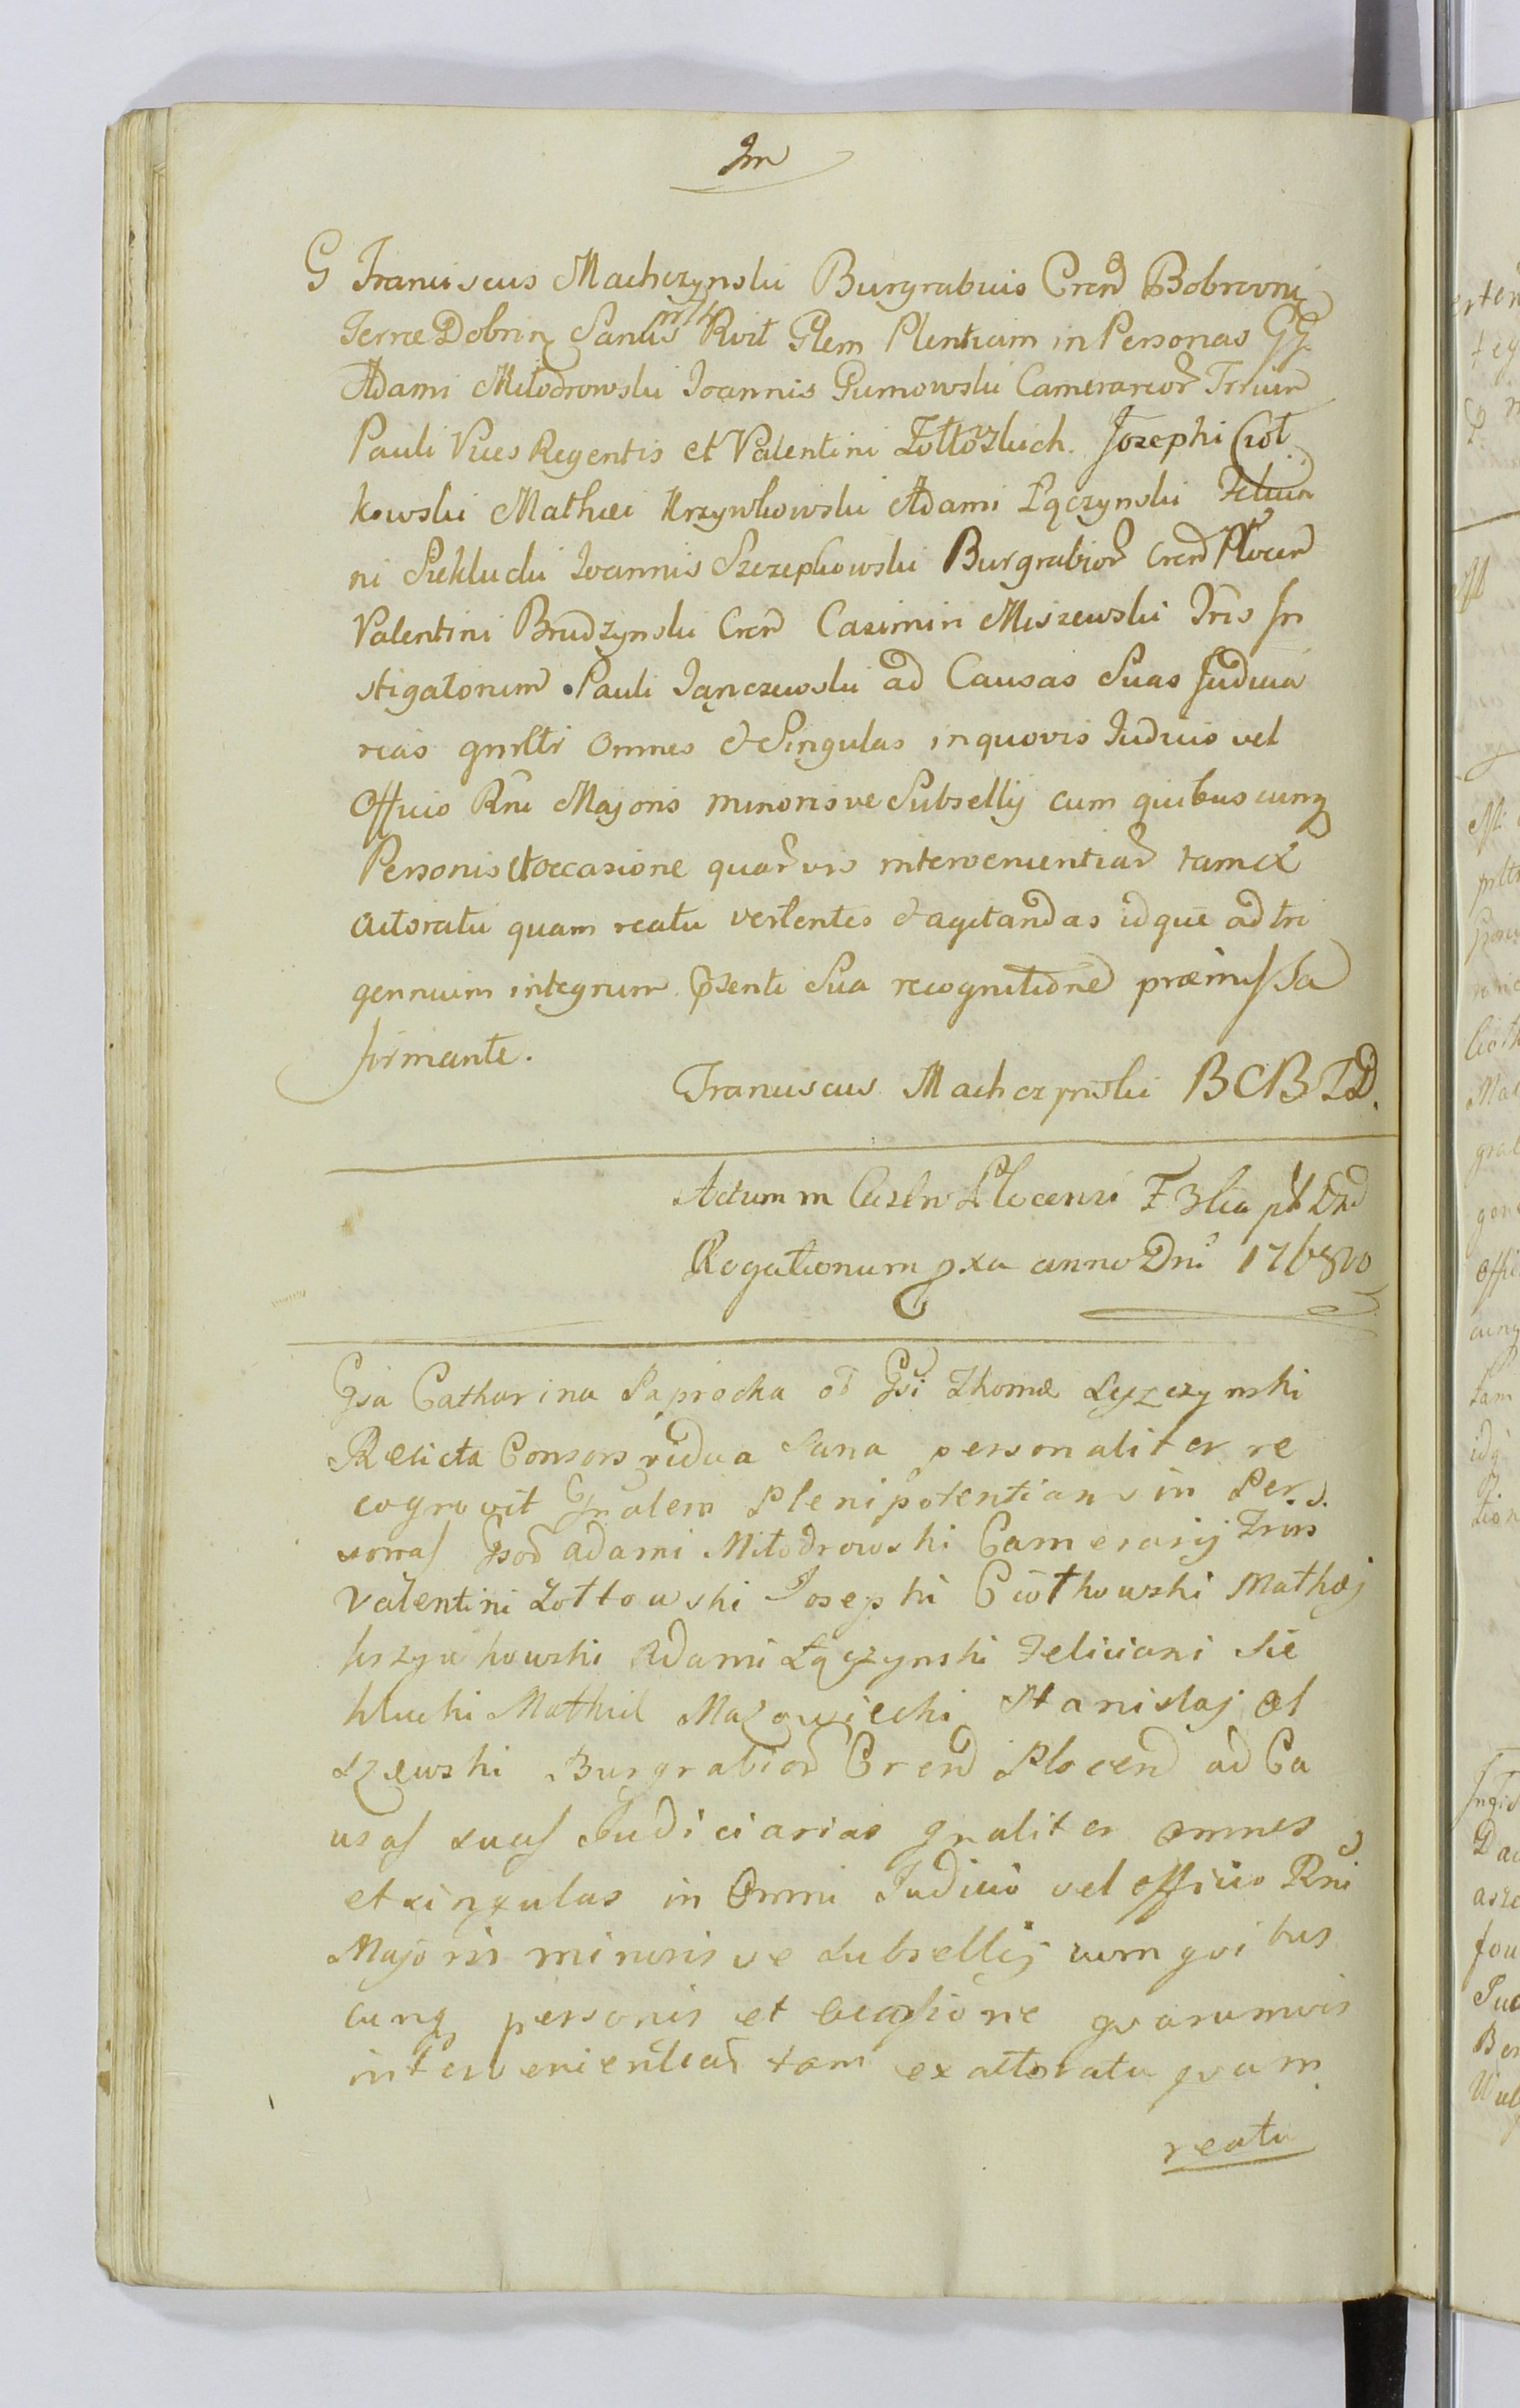 Im
G Franciscus Machczynski Burgrabius Cren Bobrovni
Terræ Dobrin Sanus Rvit Glem Plentiam in Personas GG
Adami Miłodrowski Joannis Gumowski Camerarior Trium
Pauli Vices Regentis et Valentini Josephi Cioł
kowski Mathæi Krzywkowski Adami Łączynski Felicia
ni Siekłucki Joannis Szczepkowski Burgrabior Cren Plocen
Valentini Brudzynski Cren Casimiri Miszewski Tris In
stigatorum Pauli Janczewski ad Causas Suas Judicia
rias gnrltr Omnes et Singulas in quovis Judicio vel
Officio Rni Majoris minorisve Subsellij cum quibus cunq
Personis et occasione quarvis intervenientiar tam ex
actoratu quam reatu vertentes et agitandas idque ad tri
gennium integrum. Psenti Sua recognitione præmissa
firmante.
Franciscus Machczynski B C B T D.
Actum in Plocensi F 3tia pt Dnd
Rogationum pxa anno Dni 1768vo
Gsa Catharina Paprocka ol Gsi Thomæ Łyzczynski
Relicta Consors vidua Sana personaliter re
cognovit Gnalem Plenipotentiam in Per
sonas Gsor Adami Miłodrowski Camerarij Trris
Valentini Zołtowski Josephi Ciołkowski Mathæj
krzywkowski Adami Łączynski Feliciani Sie
kłucki Mathiæ Mazowiecki Stanislaj Ol
szewski Burgrabior Cren Plocen ad Ca
usas suas Judiciarias gnaliter omnes
et singulas in Omni Judicio vel officio Rni
Majoris minorisve Subsellij cum qvibus
cunq personis et occasione qvarumvis
intervenientiar tam ex actoratu qvam
reatu